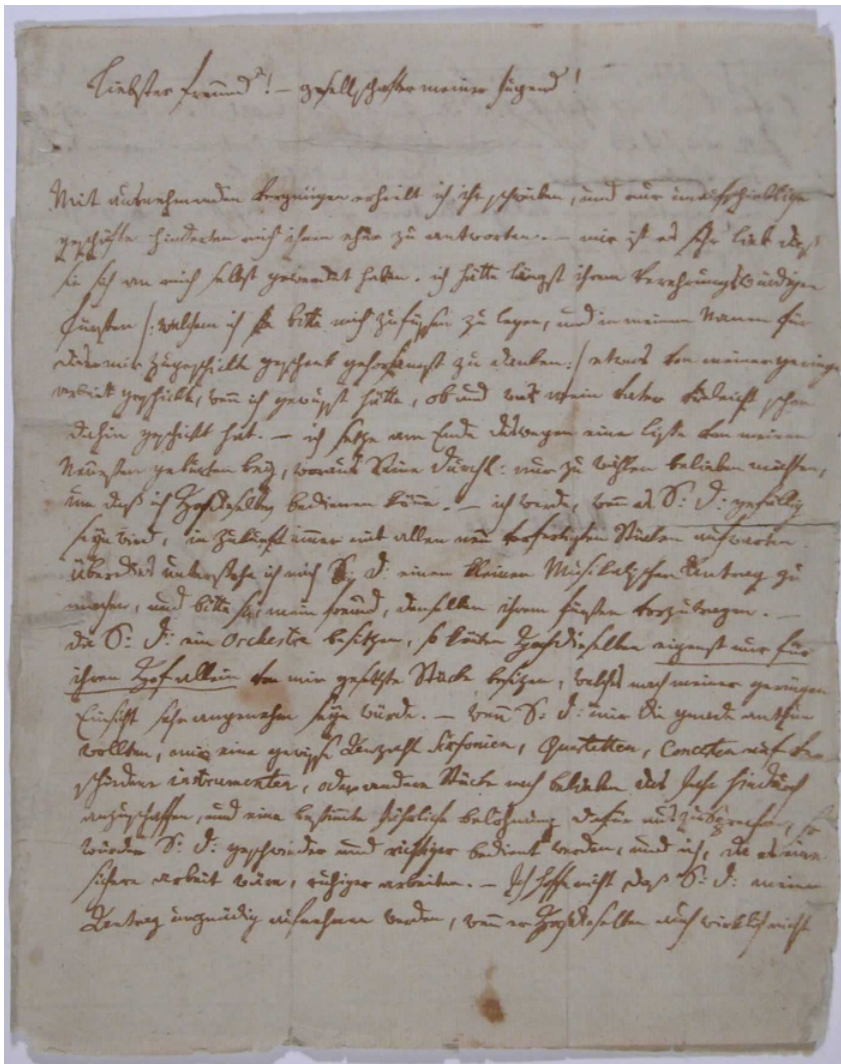 Liebster freund! – gesellschafter meiner Jugend!
Mit ausnehmenden Vergnügen erhielt ich ihr schreiben, und nur unaufschiebliche
geschäfte hinderten mich ihnen eher zu antworten. – mir ist es sehr lieb daß
sie sich an mich selbst gewendet haben. ich hätte längst ihrem Verehrungswürdigen
fürsten /: welchem ich sie bitte mich zufüssen zu legen, und in meinem Namen für
das mir zugeschickte geschenk gehorsamst zu danken: / etwas von meiner geringen
arbeit geschickt, wenn ich gewusst hätte, ob und was mein vater vieleicht schon
dahin geschickt hat. – ich setze am Ende deswegen eine liste von meinen
Neuesten geburten bey, woraus Seine Durchl: nur zu wählen belieben möchten,
um daß ich Hochdieselben bedienen könne. – ich werde, wenn es S: D: gefällig
seyn wird, in Zukunft immer mit allen neu verfertigten Stücken aufwarten.
überdies unterstehe ich mich S: D: einen kleinen Musikalischen Antrag zu
machen, und bitte sie, mein freund, denselben ihrem fürsten vorzutragen. –
da S: D: ein Orchestre besitzen, so könnten Hochdieselben eigenst nur für
ihren Hof allein von mir gesetzte Stücke besitzen, welches nach meiner geringen
Einsicht sehr angenehm seyn würde. – wenn S: D: mir die gnade anthun
wollten, mir eine gewisse Anzahl Sinfonien, Quartetten, Concerten auf ver-
schiedene instrumenten, oder andere Stücke nach belieben das Jahr hindurch
anzuschaffen, und eine bestimmte Jährliche belohnung dafür auszusprechen, so
würden S: D: geschwinder und richtiger bedient werden, und ich, da es eine
sichere arbeit wäre, ruhiger arbeiten. – Ich hoffe nicht daß S: D: meinen
Antrag ungnädig aufnehmen werden, wenn er Hochdieselben auch wirklich nicht